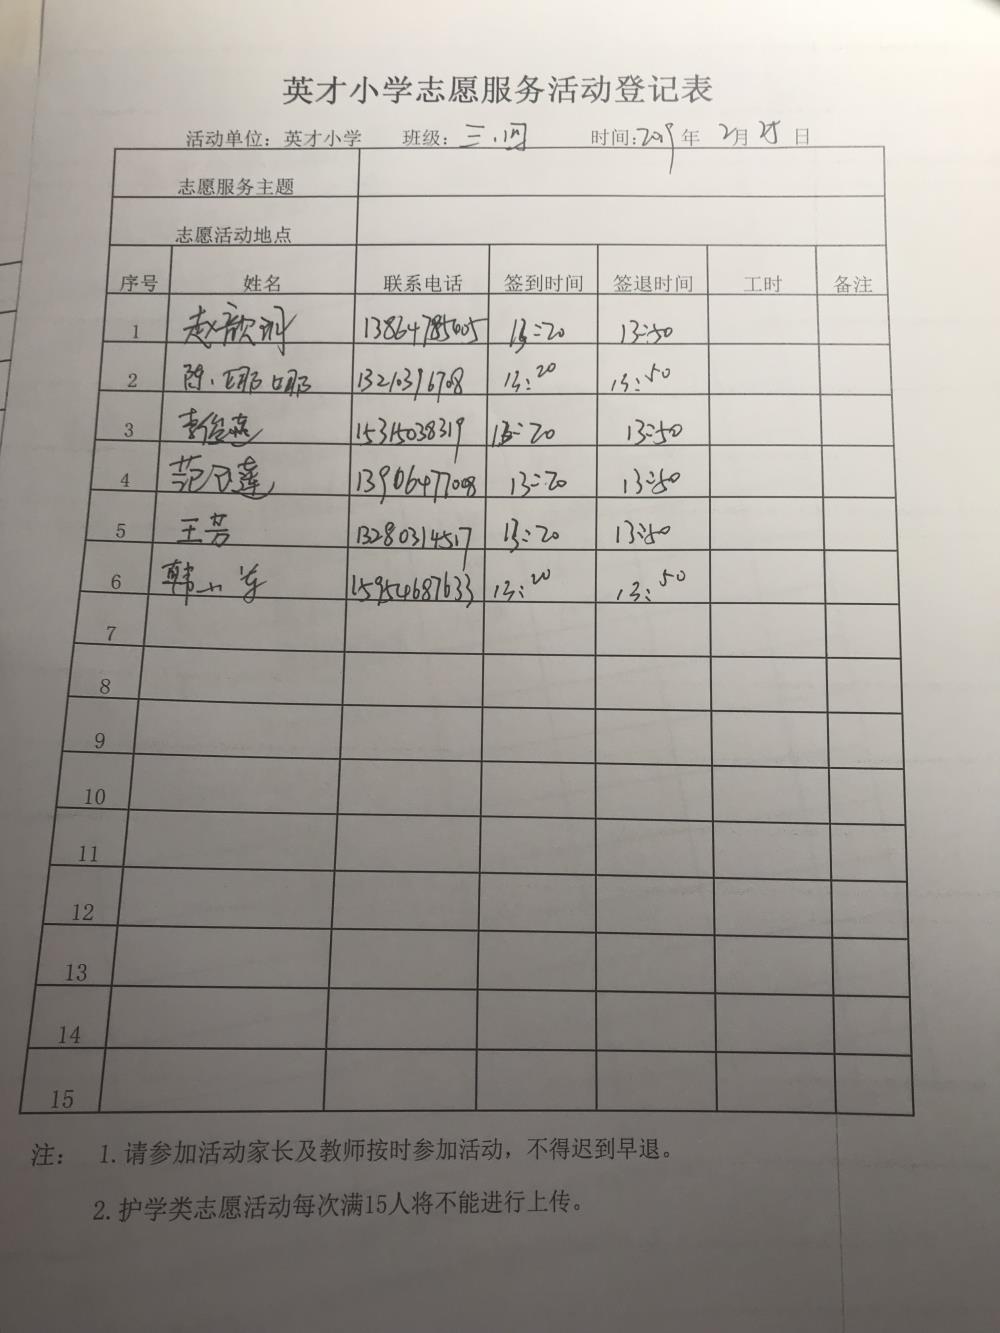 英才小学志愿服务活动登记表
活动单位：英才小学 班级：三.四 时间：2019年 2月25日
志愿服务主题
志愿活动地点
序号 姓名 联系电话 签到时间 签退时间 工时 备注
1 赵歆 13864785605 13:20 13:50
2 陈 13210396708 13:20 13:50
3 李俊燕 15315038319 13:20 13:50
4 范玉莲 13906477008 13:20 13:50
5 王芳 13280314517 13:20 13:50
6 韩小 15954687633 13:20 13:50
7
8
9
10
11
12
13
14
15
注： 1.请参加活动家长及教师按时参加活动，不得迟到早退。
2.护学类志愿活动每次满15人将不能进行上传。